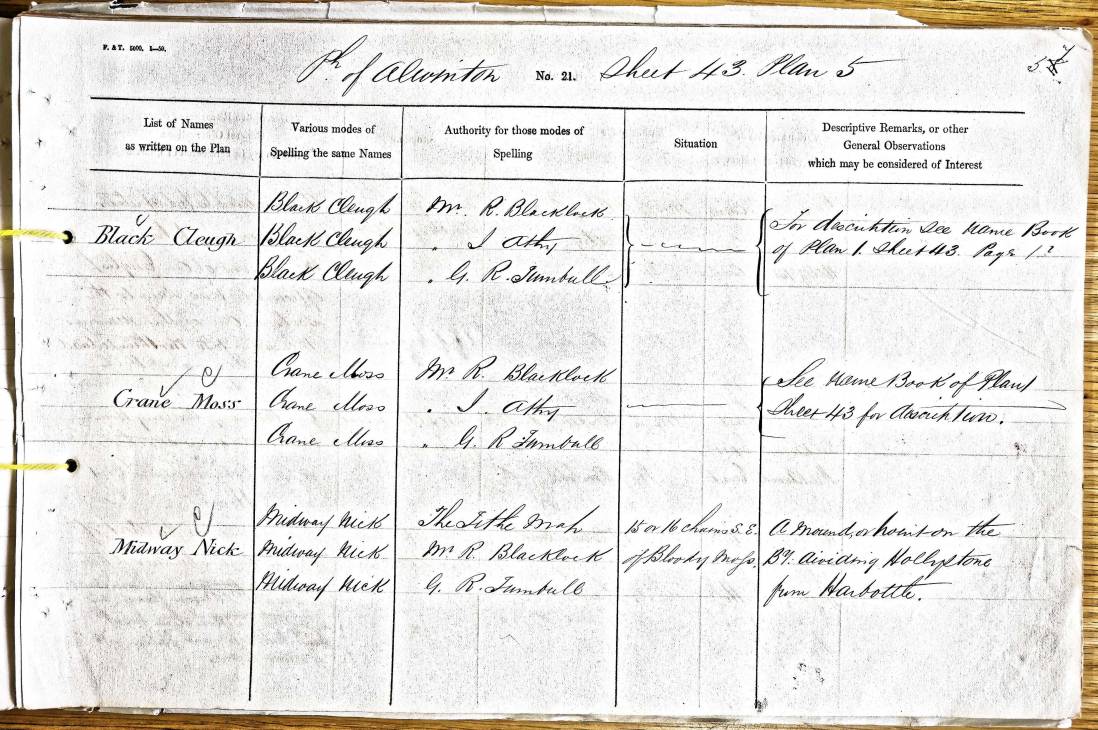 F. & T. 5000. 1—59.
Ph of Alwinton No. 21. Sheet 43. Plan 5
5
List of Names
as written on the Plan
Various modes of
Spelling the same Names
Authority for those modes of
Spelling
Situation
Descriptive Remarks, or other
General Observations
which may be considered of Interest
Black Cleugh
Black Cleugh
Black Cleugh
Black Cleugh
Mr. R. Blacklock
" J Athy
" G. R. Turnbull
For description see Name Book
of Plan 1. Sheet 43. Page
Crane Moss
Crane Moss
Crane Moss
Crane Moss
Mr R. Blacklock
" J. Athy
" G. R Turnbull
See Name Book of Plan 1
Sheet 43 for description.
Midway Nick
Midway Nick
Midway Nick
Midway Nick
The Tithe Map
Mr R. Blacklock
G. R. Turnbull
15 or 16 chains S.E.
of Bloody Moss.
A Mound, or point on the
By. dividing Hollystone
from Harbottle.